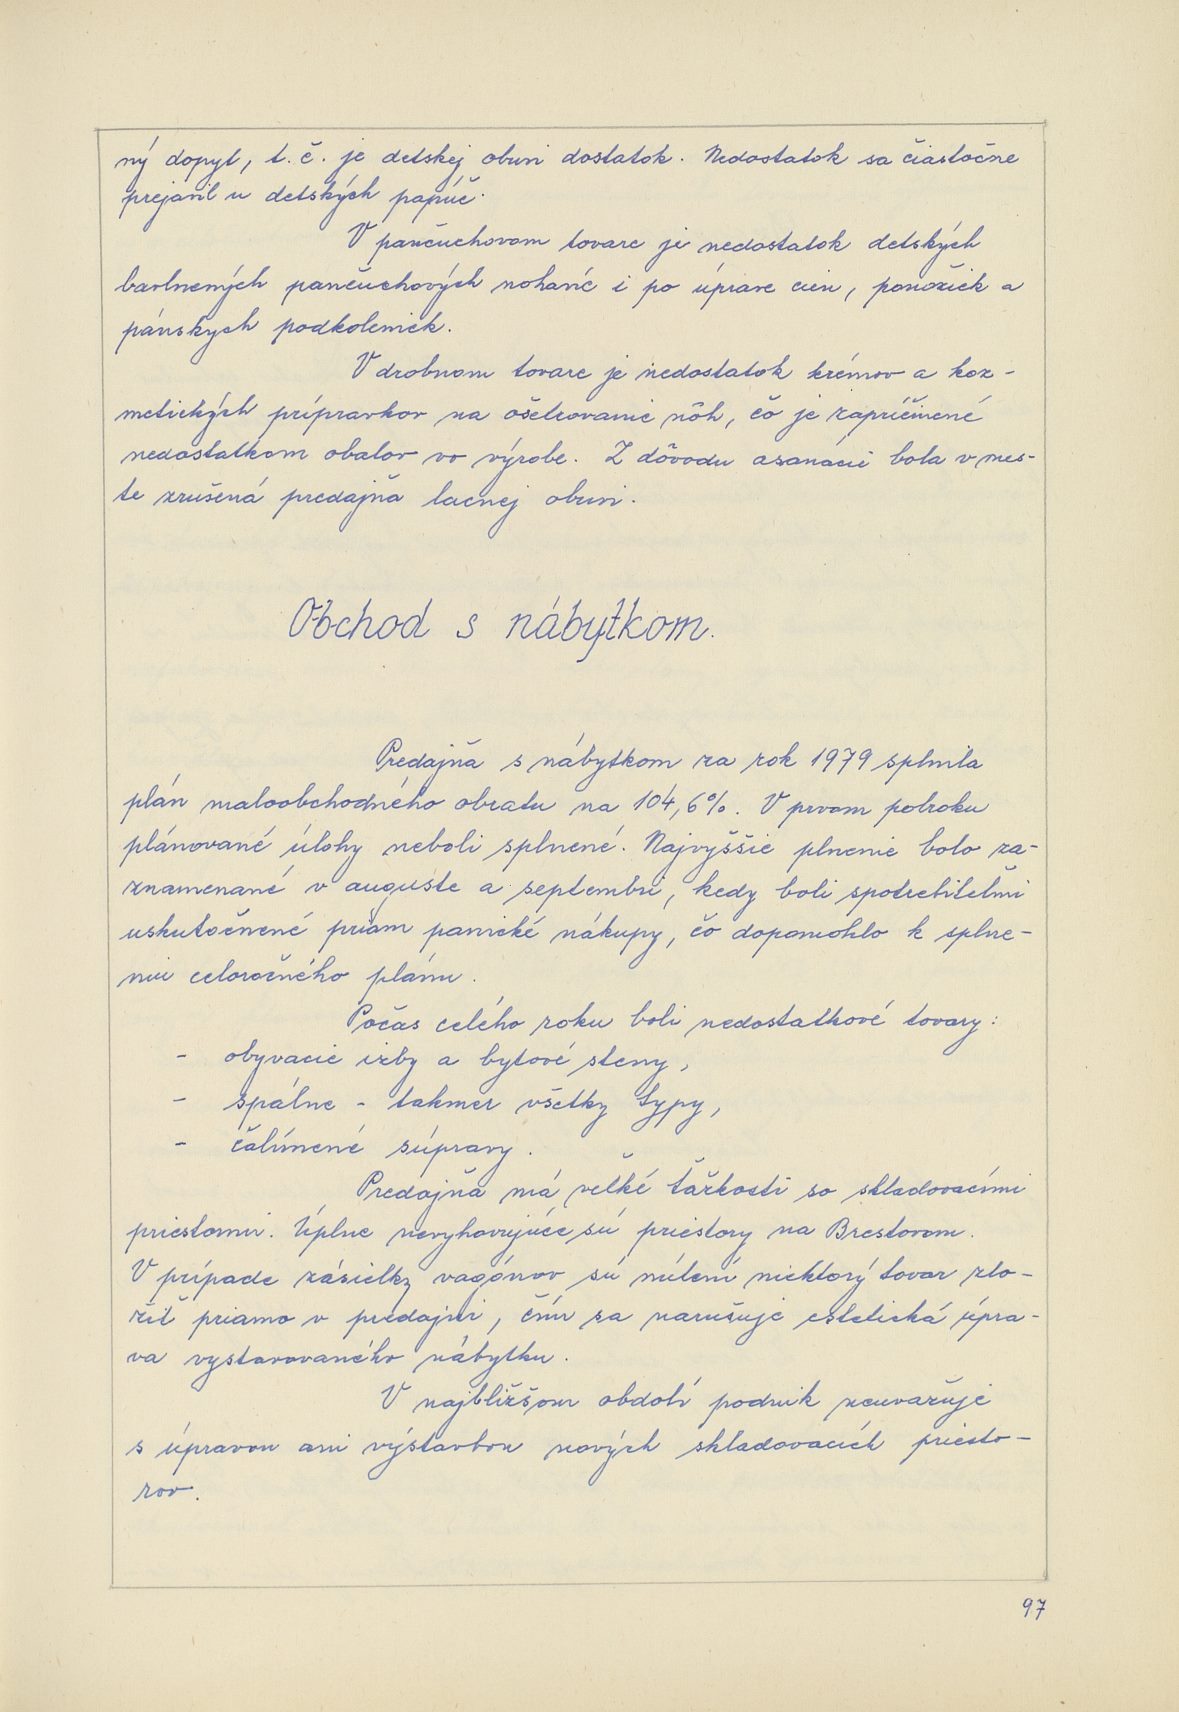 ný dopyt, t. č. je detskej obuvi dostatok. Nedostatok sa čiastočne
prejavil u detských papúč.
V pančuchovom tovare je nedostatok detských
bavlnených pančuchových nohavíc i po úprave cien, ponožiek a
pánskych podkolienok.
V drobnom tovare je nedostatok krémov a koz-
metických prípravkov na ošetrovanie nôh, čo je zapríčinené
nedostatkom obalov vo výrobe. Z dôvodu asanácie bola v mes-
te zrušená predajňa lacnej obuvi.
Obchod s nábytkom.
Predajňa s nábytkom za rok 1979 splnila
plán maloobchodného obratu na 104,6%. V prvom polroku
plánované úlohy neboli splnené. Najvyššie plnenie bolo za-
znamenané v auguste a septembri, kedy boli spotrebiteľmi
uskutočnené priam panické nákupy, čo dopomohlo k splne-
niu celoročného plánu.
Počas celého roku boli nedostatkové tovary:
- obývacie izby a bytové steny,
- spálne - takmer všetky typy,
- čalúnené súpravy.
Predajňa má veľké ťažkosti so skladovacími
priestormi. Úplne nevyhovujúce sú priestory na Brestovom.
V prípade zásielky vagónov sú nútení niektorý tovar zlo-
žiť priamo v predajni, čím sa narušuje estetická úpra-
va vystavovaného nábytku.
V najbližšom období podnik neuvažuje
s úpravou ani výstavbou nových skladovacích priesto-
rov.
97